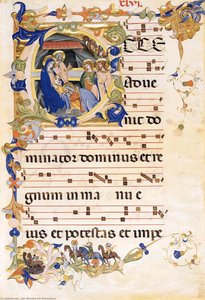 ECCE
adue
nit do
minator dominus et re
gnum in ma nu e
ius et potestas et impe